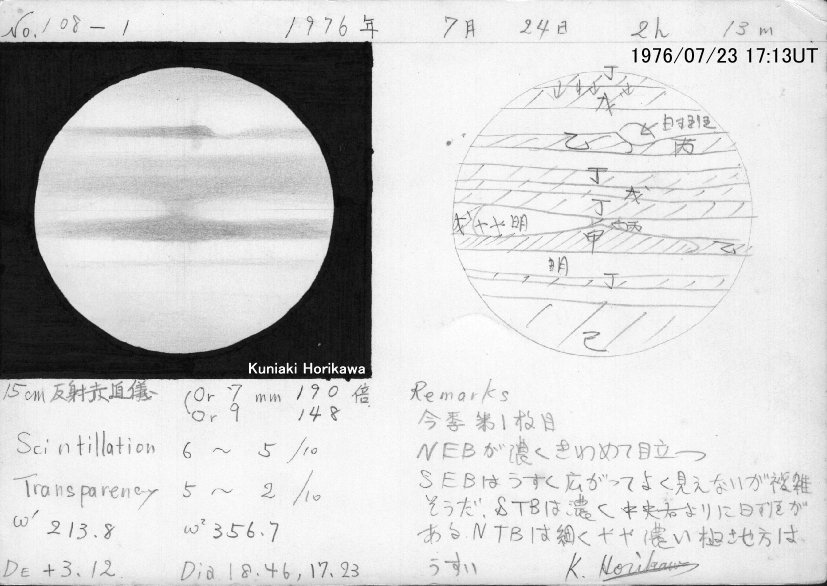 No.108-1 1976年 7月 24日 2h 13m
1976/07/23 17:13UT
丁
戊
白斑
乙 丙
丁
戊
丁
戊 やや明 丙
甲
乙
明 丁
己
Kuniaki Horikawa
15cm 反射赤道儀 (Or 7 mm 190 倍
Or 9 148
Scintillation 6 ~ 5 /10
Transparency 5 ~ 2 /10
ω' 213.8 ω² 356.7
DE +3.12 Dia 18.46, 17.23
Remarks
今季第1枚目
NEBが濃くきわめて目立つ
SEBはうすく広がってよく見えないが複雑
そうだ. STBは濃く中央右よりに白斑が
ある NTBは細くやや濃い 極地方は
うすい K. Horikawa